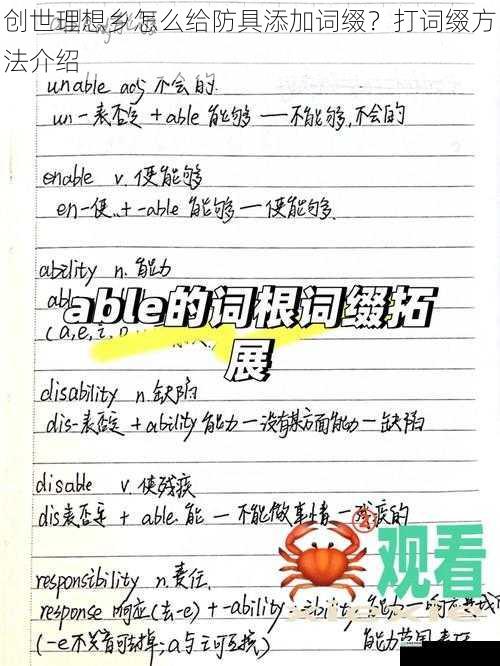 创世理想乡怎么给防具添加词缀？打词缀方
法介绍
unable adj 不会的.
un-表否定 + able 能够 — 不能够,不会的
enable v. 使能够
en-使.. + -able 能够 — 使能够.
ability n. 能力
abl
able的词根词缀拓
展
(a,e,i,
disability n.缺陷
dis-表否定 + ability 能力 — 没有某方面能力 — 缺陷
disable v. 使残疾
dis表否定 + able.能 — 不能做事情 — 残疾的
观看
responsibility n.责任.
response 响应(去-e) + -ability 能力
(-e不发音可去掉;a与i可互换)